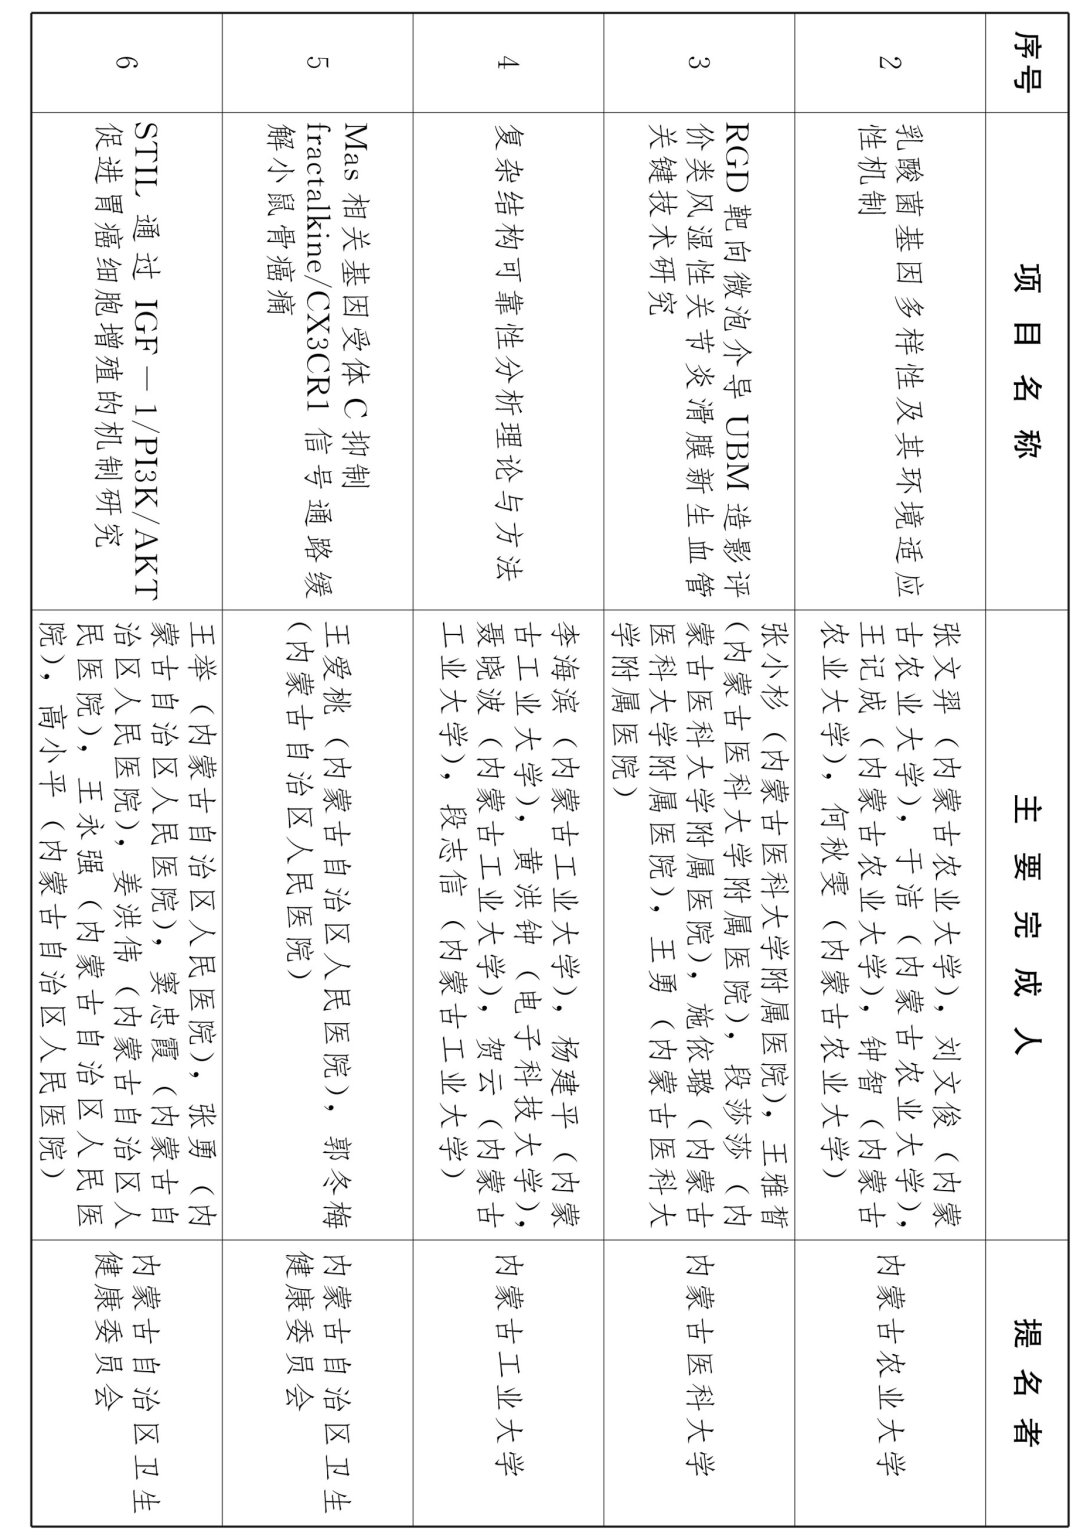 序号
项目名称
主要完成人
提名者
2
乳酸菌基因多样性及其环境适应
性机制
张文羿（内蒙古农业大学），刘文俊（内蒙
古农业大学），于洁（内蒙古农业大学），
王记成（内蒙古农业大学），钟智（内蒙古
农业大学），何秋雯（内蒙古农业大学）
内蒙古农业大学
3
RGD 靶向微泡介导 UBM 造影评
价类风湿性关节炎滑膜新生血管
关键技术研究
张小杉（内蒙古医科大学附属医院），王雅晢
（内蒙古医科大学附属医院），段莎莎（内
蒙古医科大学附属医院），施依璐（内蒙古
医科大学附属医院），王勇（内蒙古医科大
学附属医院）
内蒙古医科大学
4
复杂结构可靠性分析理论与方法
李海滨（内蒙古工业大学），杨建平（内蒙
古工业大学），黄洪钟（电子科技大学），
聂晓波（内蒙古工业大学），贺云（内蒙古
工业大学），段志信（内蒙古工业大学）
内蒙古工业大学
5
Mas 相关基因受体 C 抑制
fractalkine/CX3CR1 信号通路缓
解小鼠骨癌痛
王爱桃（内蒙古自治区人民医院），郭冬梅
（内蒙古自治区人民医院）
内蒙古自治区卫生
健康委员会
6
STIL 通过 IGF－1/PI3K/AKT
促进胃癌细胞增殖的机制研究
王举（内蒙古自治区人民医院），张勇（内
蒙古自治区人民医院），窦忠霞（内蒙古自
治区人民医院），姜洪伟（内蒙古自治区人
民医院），王永强（内蒙古自治区人民医
院），高小平（内蒙古自治区人民医院）
内蒙古自治区卫生
健康委员会